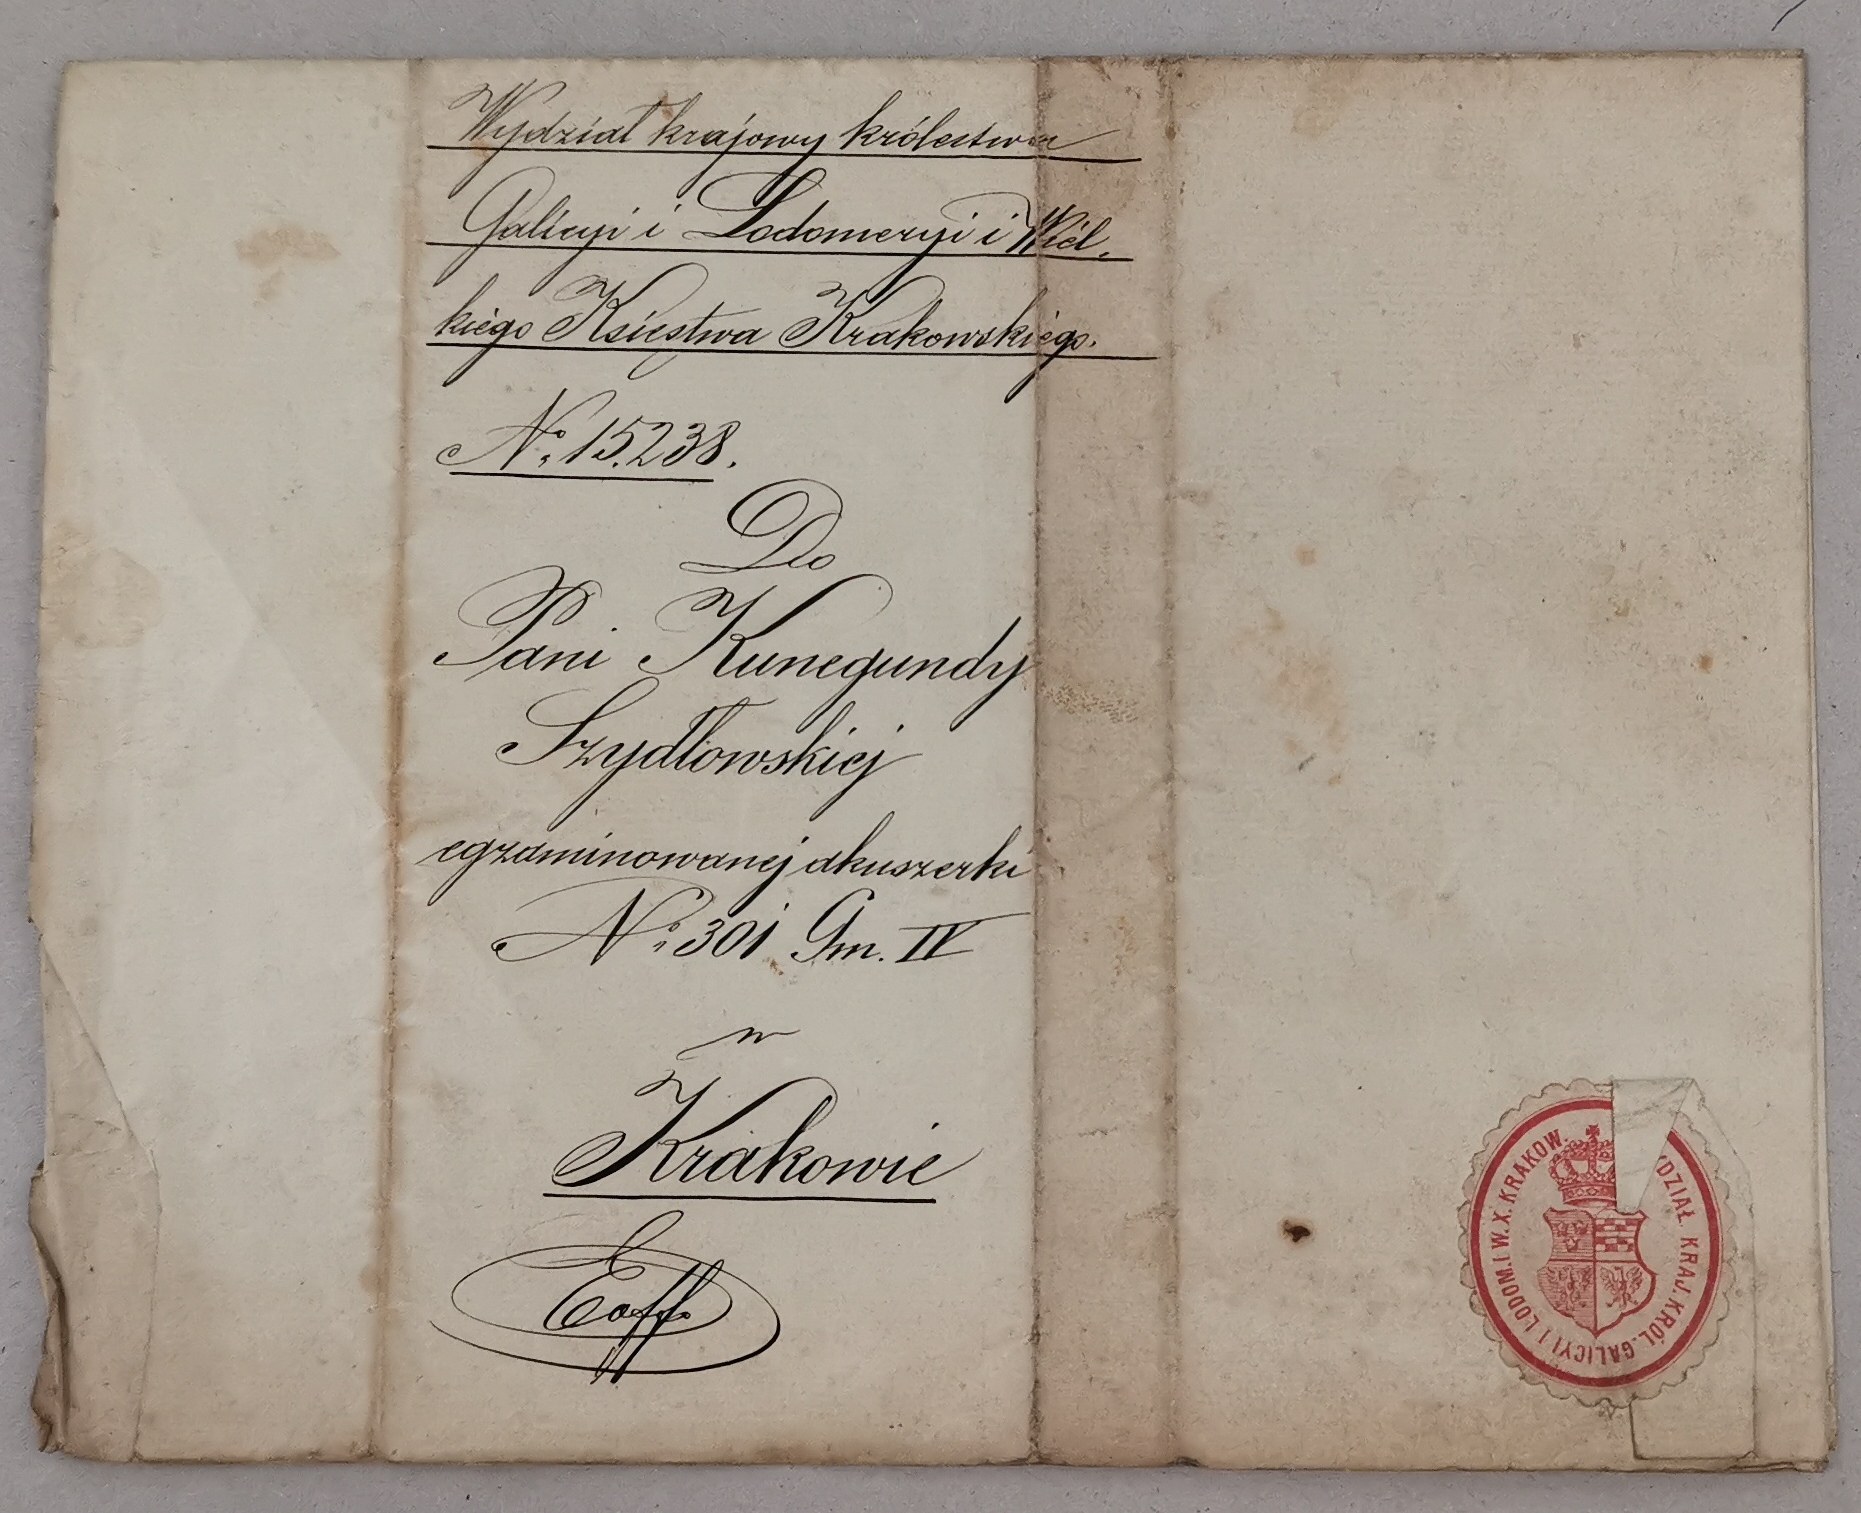 Wydział krajowy królestwa
Galicyi i Lodomeryi i Wiel.
kiégo Księstwa Krakowskiégo.
No. 15.238.
Do
Pani Kunegundy
Szydłowskiej
egzaminowanej akuszerki
No. 301 Gm. IV
w
Krakowie
DZIAŁ KRAJ. KRÓL. GALICYI I LODOM. I W. X. KRAKOW.